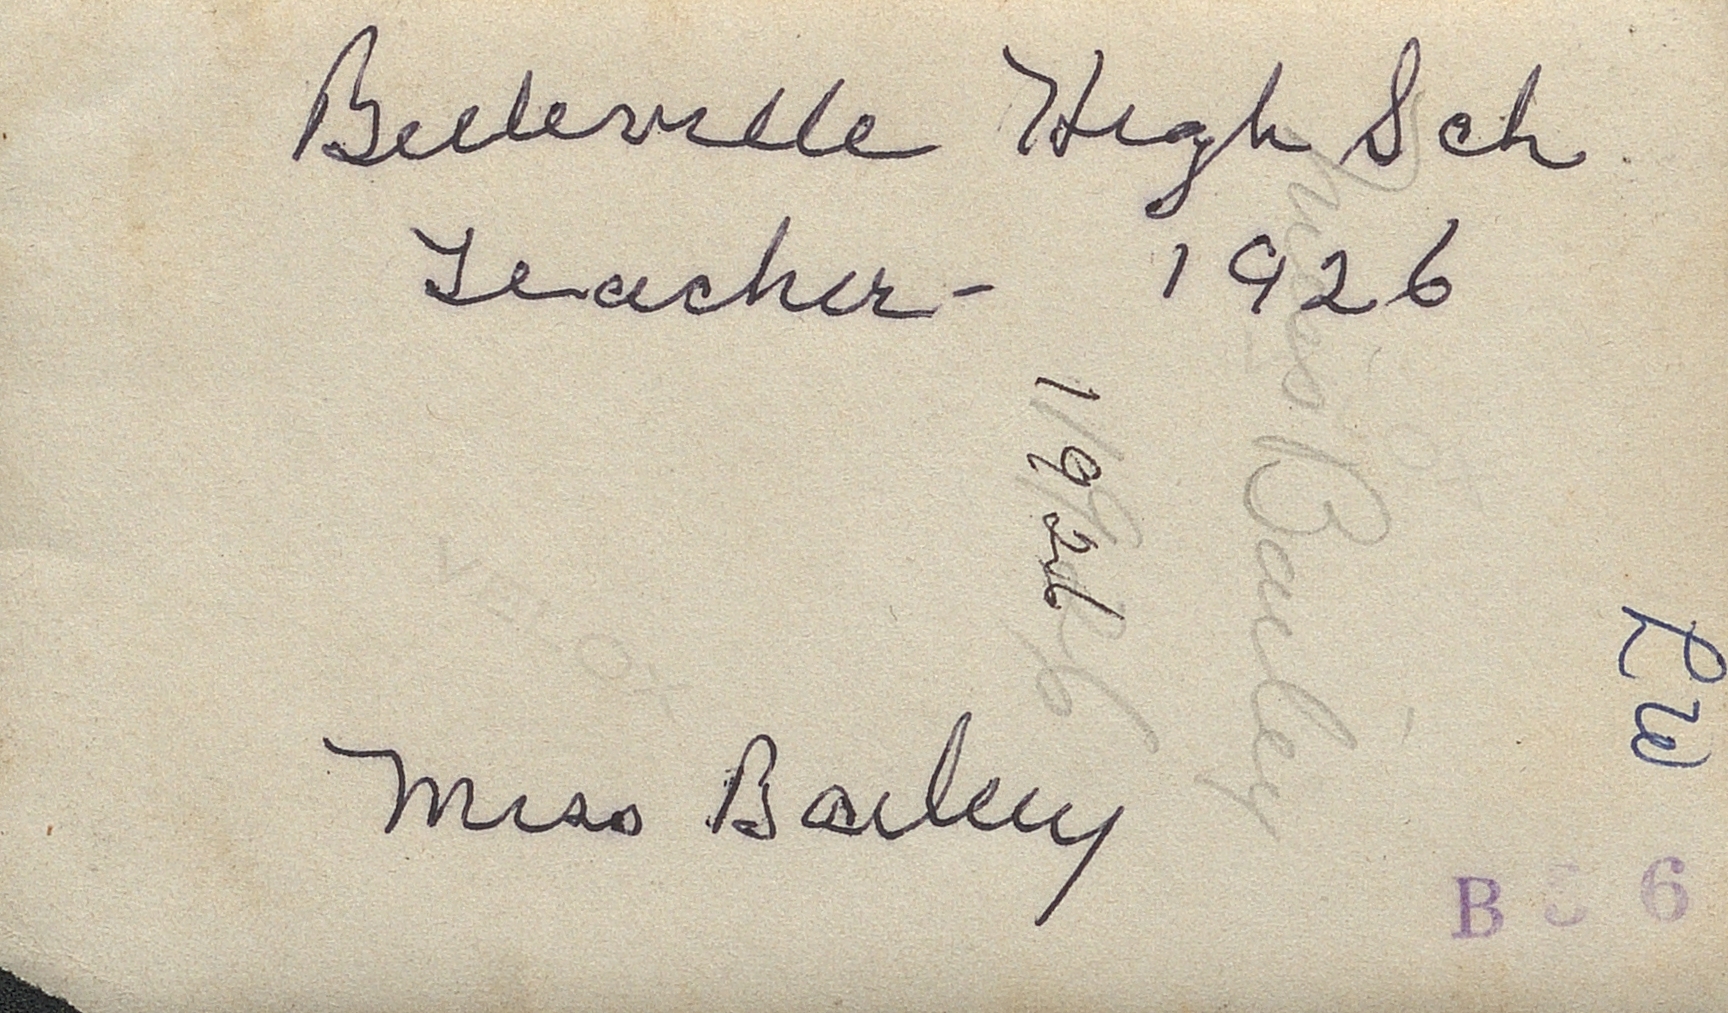 High Sch
Teacher - 1926
1926
1926
Miss Bailey
Miss Bailey
VELOX
RW
B 6